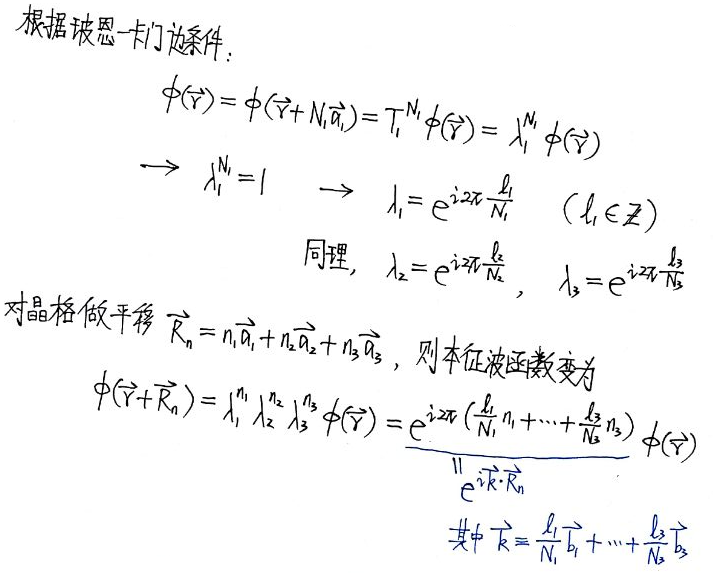 根据玻恩-卡门边条件:
ϕ(r⃗) = ϕ(r⃗+N₁a⃗₁) = T₁^{N₁} ϕ(r⃗) = λ₁^{N₁} ϕ(r⃗)
→ λ₁^{N₁} = 1 → λ₁ = e^{i2π l₁/N₁} (l₁ ∈ ℤ)
同理, λ₂ = e^{i2π l₂/N₂} , λ₃ = e^{i2π l₃/N₃}
对晶格做平移 R⃗ₙ = n₁a⃗₁ + n₂a⃗₂ + n₃a⃗₃ , 则本征波函数变为
ϕ(r⃗+R⃗ₙ) = λ₁^{n₁} λ₂^{n₂} λ₃^{n₃} ϕ(r⃗) = e^{i2π (l₁/N₁ n₁ + ⋯ + l₃/N₃ n₃)} ϕ(r⃗)
॥
e^{ik⃗·R⃗ₙ}
其中 k⃗ ≡ l₁/N₁ b⃗₁ + ⋯ + l₃/N₃ b⃗₃